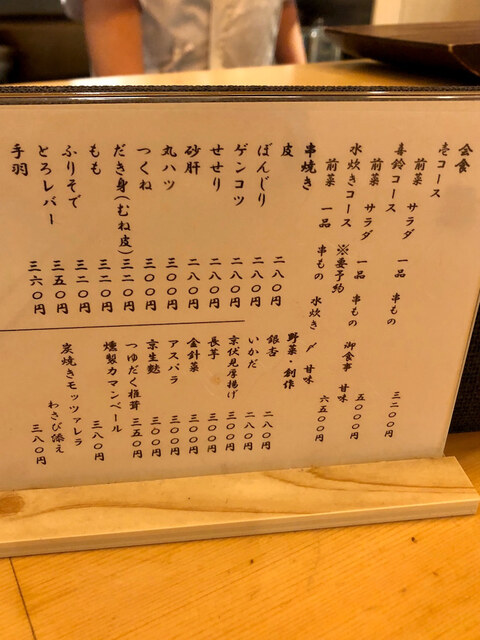 会食
壱コース
前菜 サラダ 一品 串もの 三二〇〇円
喜鈴コース
前菜 サラダ 一品 串もの 御食事 甘味 五〇〇〇円
水炊きコース ※要予約
前菜 一品 串もの 水炊き 〆 甘味 六五〇〇円
串焼き
皮 二八〇円
ぼんじり 二八〇円
ゲンコツ 二八〇円
せせり 二八〇円
砂肝 二八〇円
丸ハツ 三〇〇円
つくね 三〇〇円
だき身(むね皮) 三二〇円
もも 三二〇円
ふりそで 三五〇円
とろレバー 三六〇円
手羽
野菜・創作
銀杏 二八〇円
いかだ 二八〇円
京伏見厚揚げ 三〇〇円
長芋 三〇〇円
金針菜 三〇〇円
アスパラ 三〇〇円
京生麩 三〇〇円
つゆだく椎茸 三五〇円
燻製カマンベール 三八〇円
炭焼きモッツァレラ
わさび添え 三八〇円